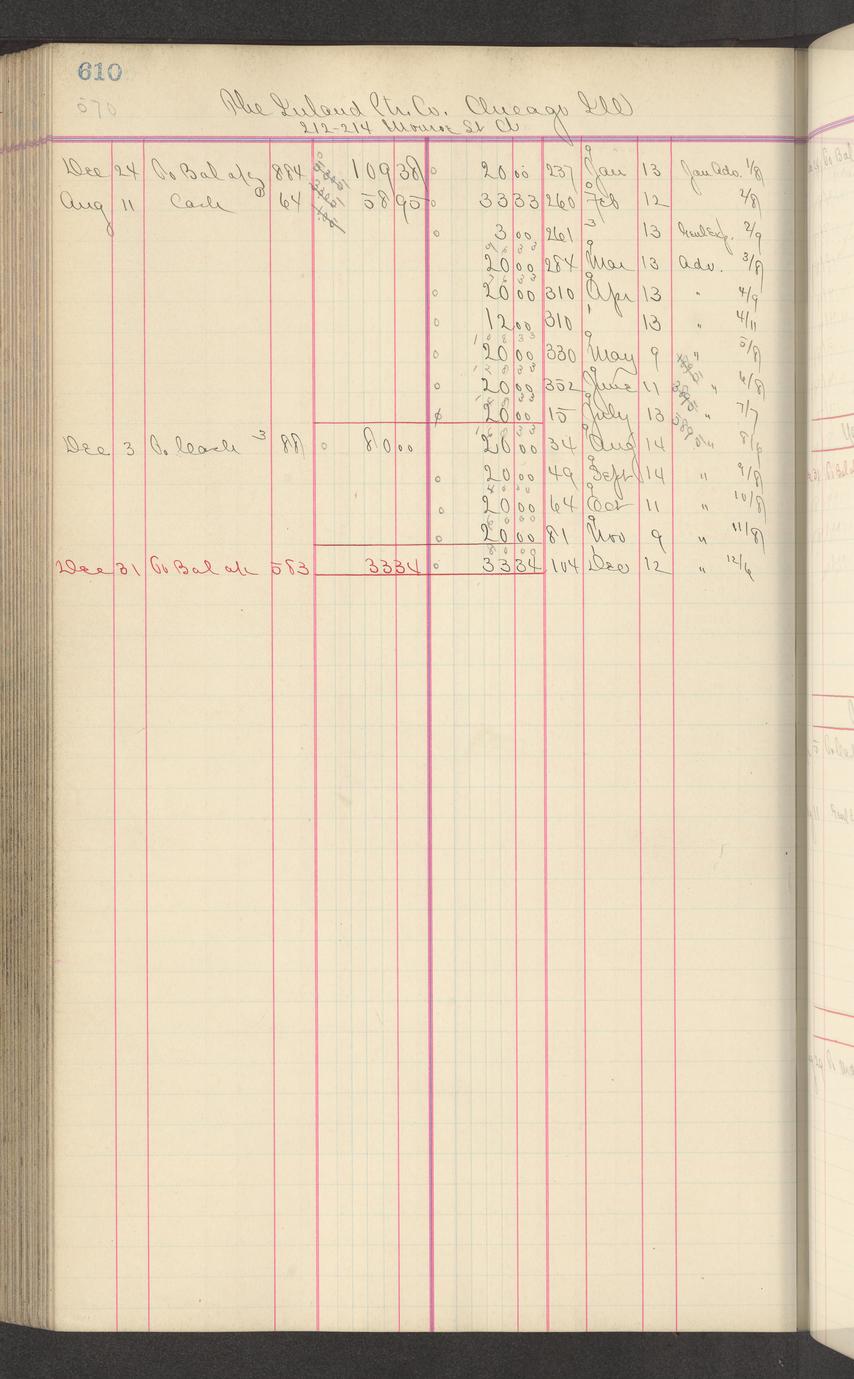 610
570
The Inland Ptr. Co. Chicago Ill
212-214 Monroe St C
Dec 24 To Bal a/c 884 109 38 20 00 237 9 Jan 13 Jan Adv. 1/8
Aug 11 Cash 64 58 95 33 33 260 Feb 12 2/8
3 00 261 3 13 2/9
20 00 284 9 Mar 13 Adv. 3/8
20 00 310 9 Apr 13 " 4/9
12 00 310 1 13 " 4/11
20 00 330 9 May 9 " 5/8
20 00 352 9 June 11 " 6/8
20 00 15 9 July 13 " 7/7
Dec 3 To Cash 3 88 80 00 20 00 34 9 Aug 14 " 8/6
20 00 49 9 Sept 14 " 9/8
20 00 64 9 Oct 11 " 10/8
20 00 81 9 Nov 9 " 11/8
Dec 31 To Bal a/c 583 33 34 33 34 104 Dec 12 " 12/6